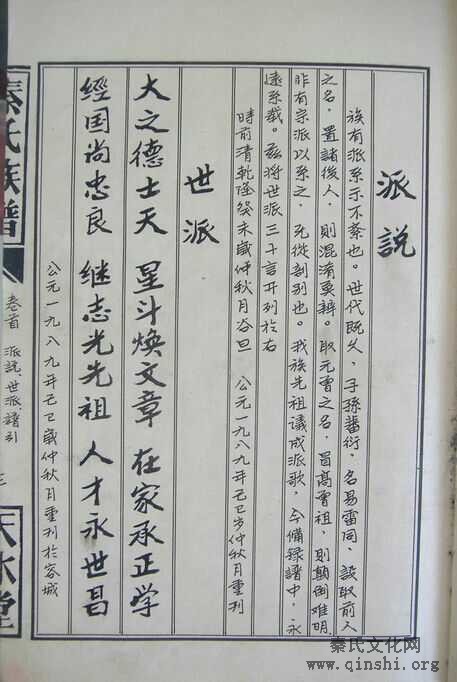 派説
族有派系示不紊也。世代既久，子孫蕃衍，名易雷同，設取前人
之名，置諸後人，則混淆莫辨。取元曾之名，冒高曾祖，則顛倒难明，
非有宗派以系之，死從剖别也。我族先祖議成派歌，今備録譜中，永
遠系載。兹将世派三十言开列於右
時前清乾隆癸未歲仲秋月谷旦 公元一九八九年己巳岁仲秋月重刊
世派
大之德士天 星斗焕文章 在家承正学
經国尚忠良 继志光先祖 人才永世昌
公元一九八九年己巳歲仲秋月重刊於容城
秦氏族譜
卷首 派説、世派、譜引
三
秦氏文化网
www.qinshi.org